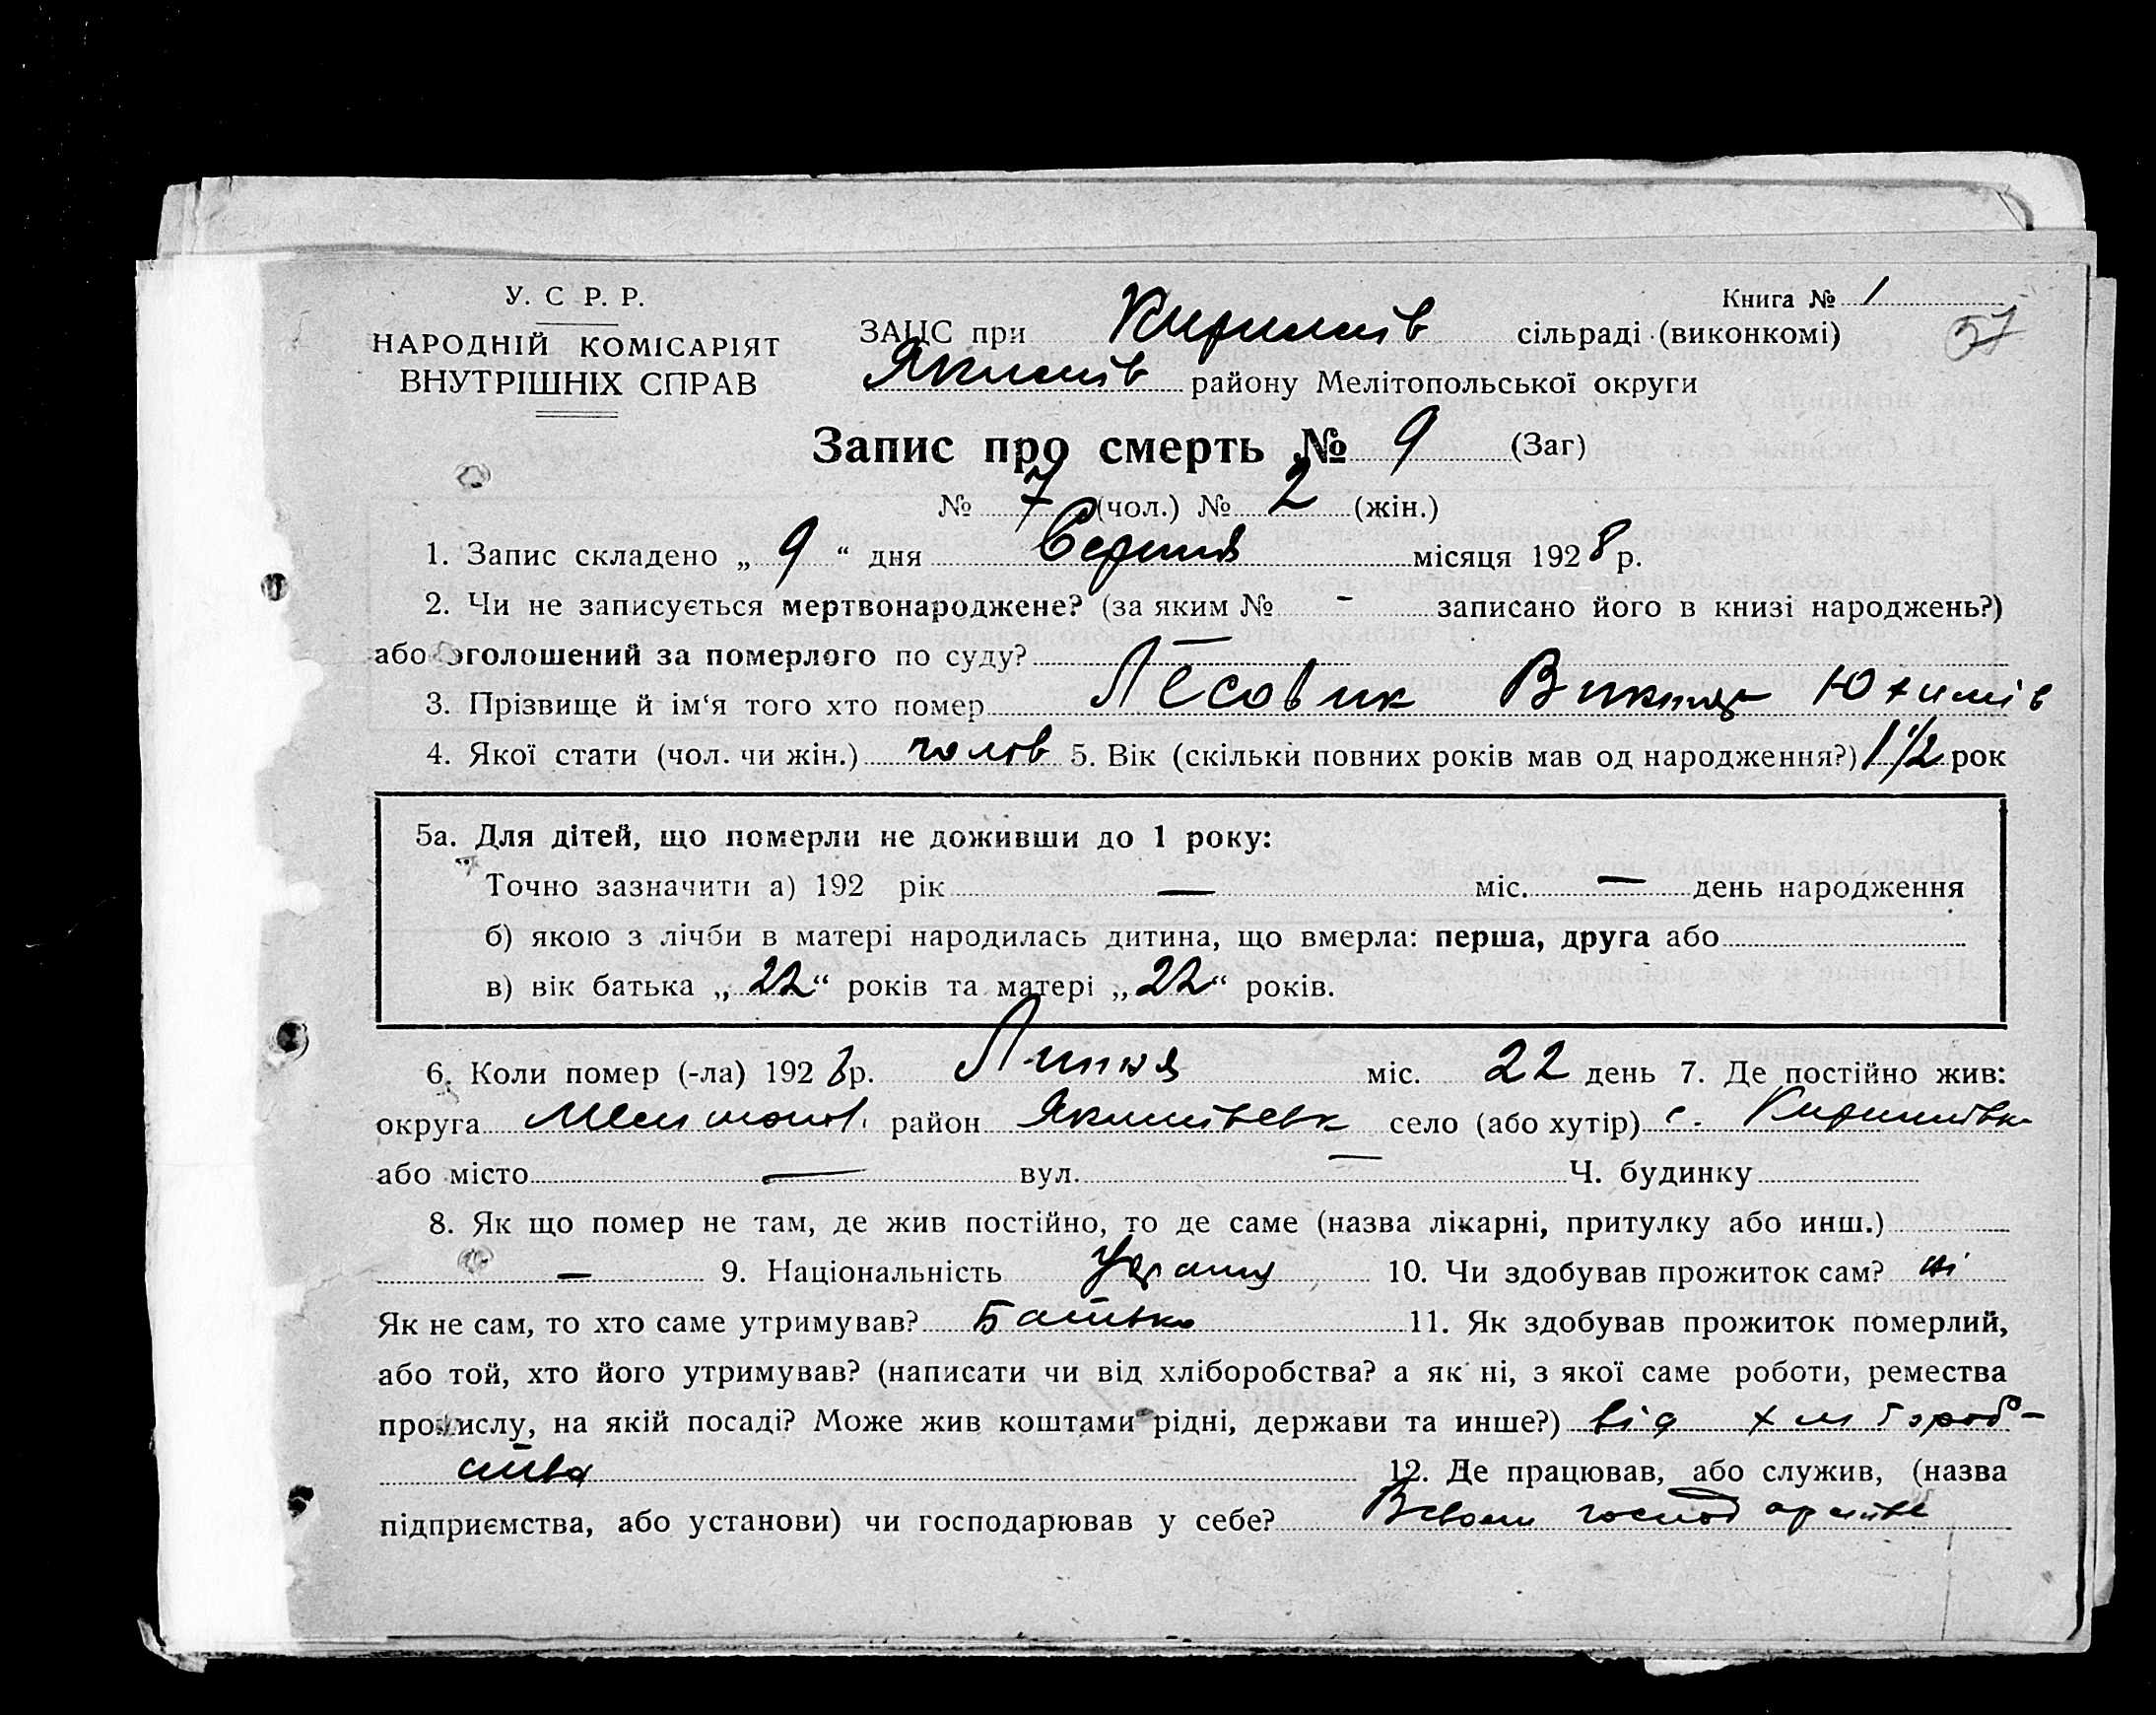 У. С Р. Р.
НАРОДНІЙ КОМІСАРІЯТ
ВНУТРІШНІХ СПРАВ
Книга № 1
57
ЗАЦС при Кирилів сільраді (виконкомі)
Якимів району Мелітопольської округи
Запис про смерть № 9 (Заг)
№ 7 (чол.) № 2 (жін.)
1. Запис складено „ 9 “ дня Серпня місяця 1928 р.
2. Чи не записується мертвонароджене? (за яким № - записано його в книзі народжень?)
або оголошений за померлого по суду? —
3. Прізвище й ім‘я того хто помер Лесовик Юхимів
4. Якої стати (чол. чи жін.) чолов 5. Вік (скільки повних років мав од народження?) 1 1/2 рок
5а. Для дітей, що померли не доживши до 1 року:
Точно зазначити а) 192 рік — міс. — день народження
б) якою з лічби в матері народилась дитина, що вмерла: перша, друга або
в) вік батька „ 22 “ років та матері „ 22 “ років.
6. Коли помер (-ла) 1928 р. Липня міс. 22 день 7. Де постійно жив:
округа Мелітопол. район Якимівськ село (або хутір) с. Кирилівка
або місто — вул. — Ч. будинку
8. Як що помер не там, де жив постійно, то де саме (назва лікарні, притулку або инш.)
— 9. Національність 10. Чи здобував прожиток сам? ні
Як не сам, то хто саме утримував? Батько 11. Як здобував прожиток померлий,
або той, хто його утримував? (написати чи від хліборобства? а як ні, з якої саме роботи, ремества
промислу, на якій посаді? Може жив коштами рідні, держави та инше?) від хлібороб-
ства 12. Де працював, або служив, (назва
підприємства, або установи) чи господарював у себе? В своєм господарстве